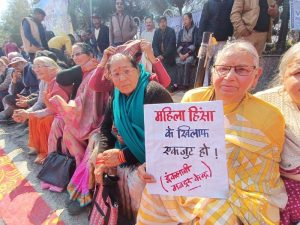 महिला हिंसा
के खिलाफ
एकजुट हो !
(इंकलाबी
मजदूर केन्द्र)